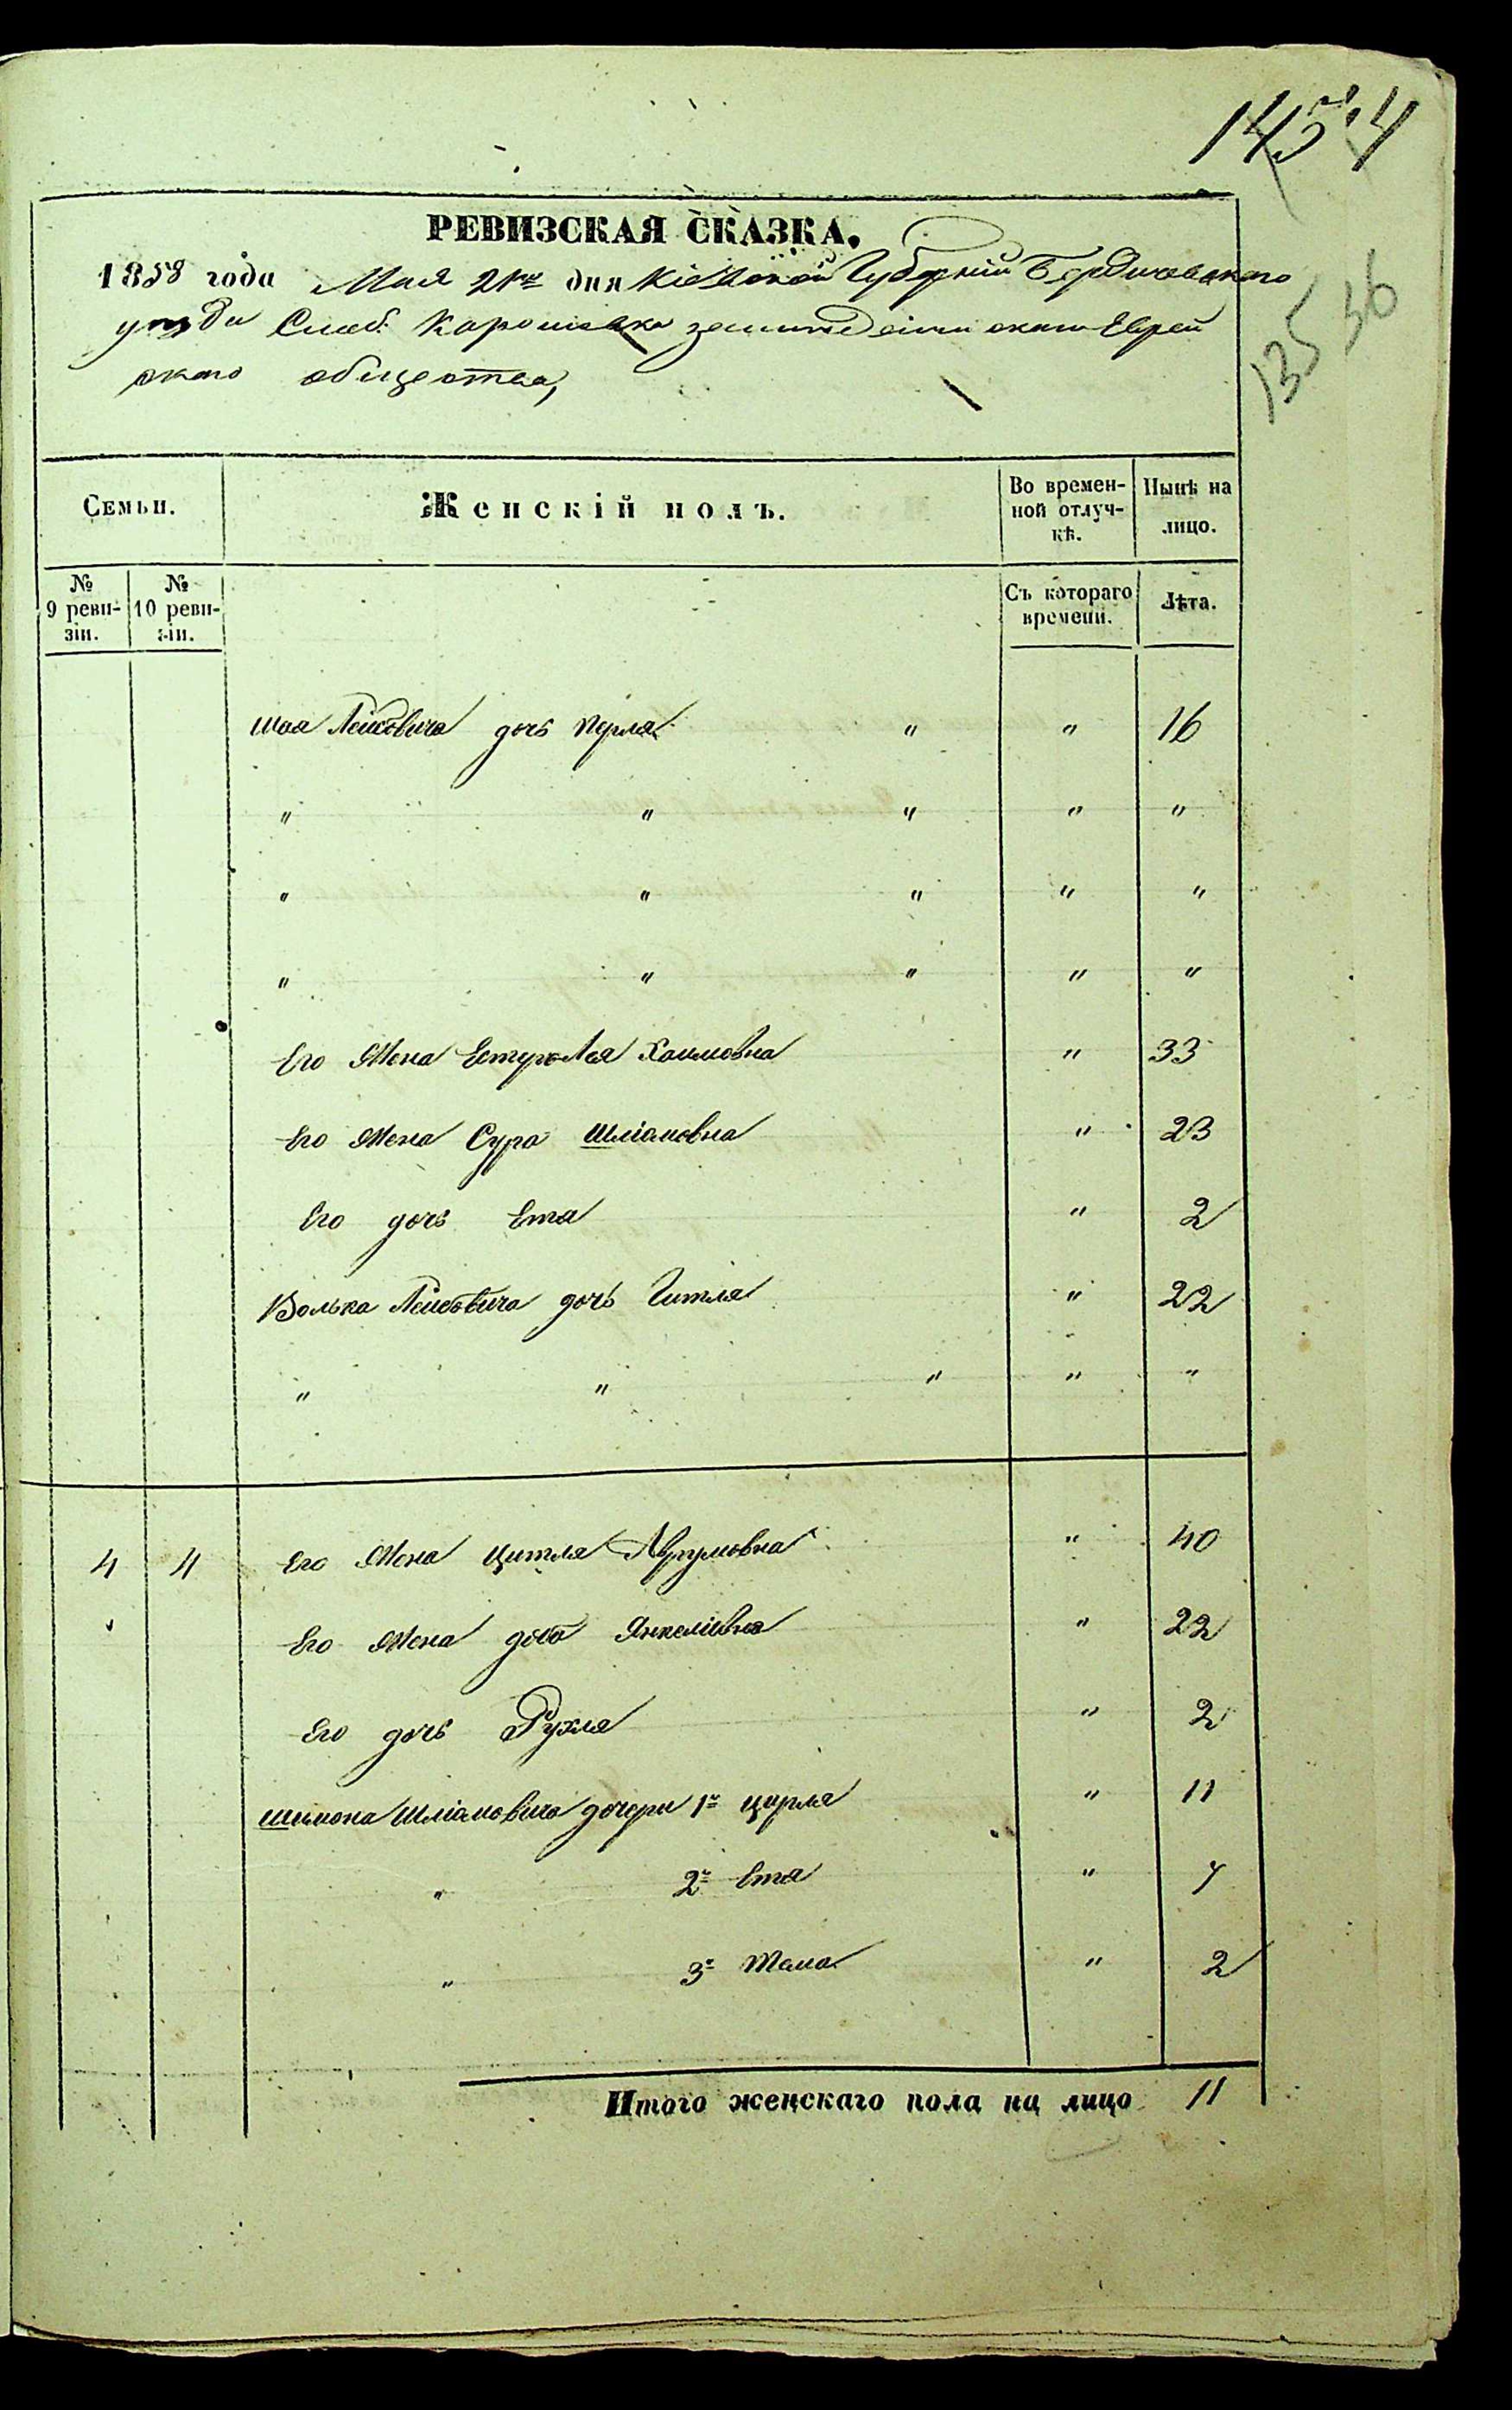 РЕВИЗСКАЯ СКАЗКА.
1858 года Мая 21го дня Кіевской Губерніи Бердичевскаго
уѣзда Слоб: Карошевка Еврей
скаго общества,
135 36
Семьи.
Женскій полъ.
Во времен-
ной отлуч-
кѣ.
Нынѣ на
лицо.
№
9 реви-
зіи.
№
10 реви-
зіи.
Съ котораго
времени.
Лѣта.
Шая Лейбовича дочь Перля " " 16
" " " " "
" " " " "
" " " " "
Его Жена Естеръ Лея Хаимовна " 33
Его Жена Сура Шліомовна " 23
Его дочь Ета " 2
Волька Лейбовича дочь Гитля " 22
" " " " "
4 4 Его Жена Цитля Аврумовна " 40
Его Жена Доба Янкеліовна " 22
Его дочь Рухля " 2
Шимона Шліомовича дочери 1я Цирля " 11
" 2я Ета " 7
" 3я " 2
Итого женскаго пола на лицо 11